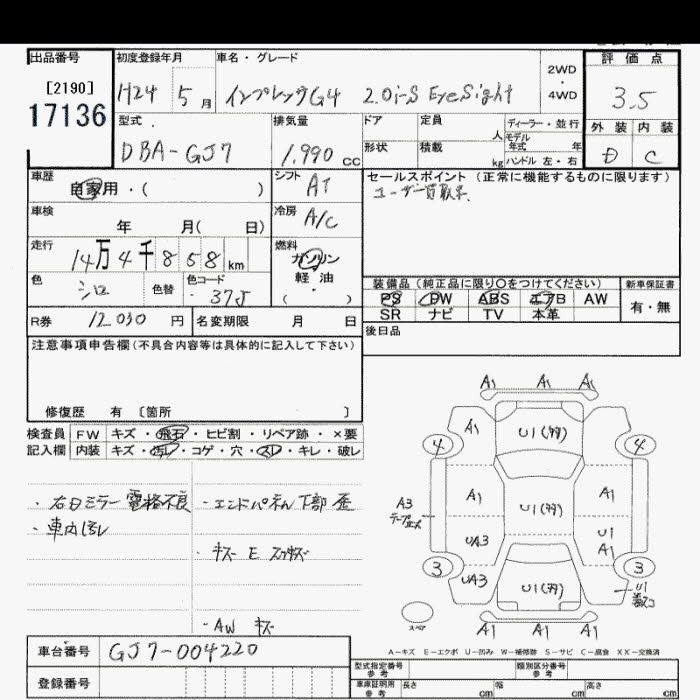 出品番号 初度登録年月 車名・グレード 評価点
[2190]
17136
H24 5月 インプレッサG4 2.0i-S EyeSight
2WD・4WD
3.5
型式 排気量 ドア 定員 人 ディーラー・並行 外装 内装
モデル年式 年
DBA-GJ7 1,990 cc 形状 積載 kg ハンドル 左・右 D C
車歴 自家用・( ) シフト AT セールスポイント(正常に機能するものに限ります)
ユーザー買取車
車検 年 月( 日) 冷房 A/C
走行 14万4千858km 燃料 ガソリン 軽油 ・( )
色 シロ 色替 色コード 37J
装備品(純正品に限り○をつけてください) 新車保証書
PS PW ABS エアB AW 有・無
SR ナビ TV 本革
R券 12,030円 名変期限 月 日 後日品
注意事項申告欄(不具合内容等は具体的に記入して下さい)
修復歴 有 〔箇所 〕
検査員 FW キズ・飛石・ヒビ割・リペア跡・×要
記入欄 内装 キズ・汚レ・コゲ・穴・スレ・キレ・破レ
・右日ミラー電格不良
・車内汚レ
・エンドパネル下部歪
・キズ E スリキズ
・AW キズ
A1 A1 A1
A1 U1(タタ)
4 4
A1 U1(タタ) A1
A3
UA3 U1 A1
3 UA3 U1(タタ) 3
U1
スペア A1 A1 A1
A-キズ E-エクボ U-凹み W-補修跡 S-サビ C-腐食 XX-交換済
車台番号 GJ7-004220
登録番号
型式指定番号 参考 類別区分番号 参考
車庫証明用 参考 長さ cm 幅 cm 高さ cm